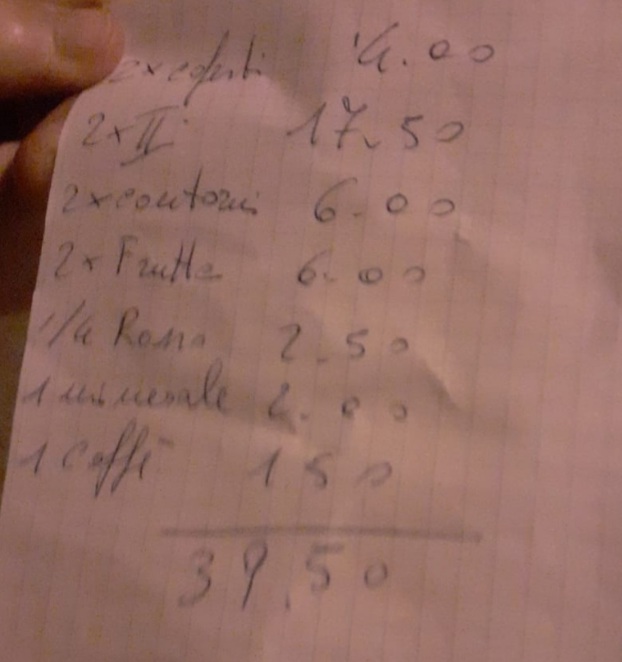 2xcoperti 4.00
2xII 17.50
2xcontorni 6.00
2x Frutta 6.00
1/4 Rosso 2.50
1 minerale 2.00
1 caffè 150
39.50